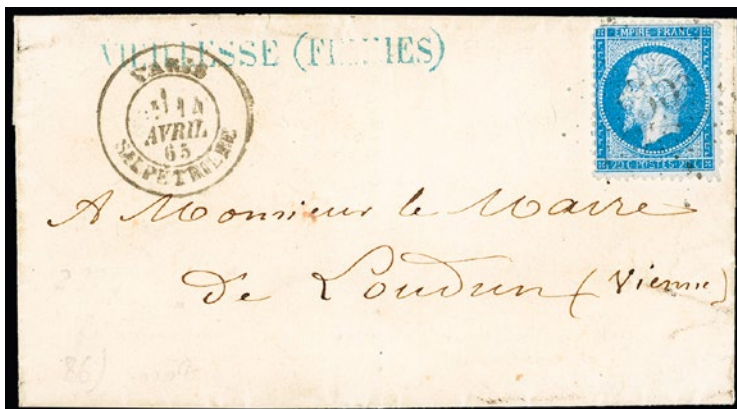 VIEILLESSE (FEMMES)
PARIS
14
AVRIL
65
SALPETRIERE
EMPIRE FRANC
20 C POSTES 20 C
A Monsieur le Maire
de Loudun (Vienne)
(98